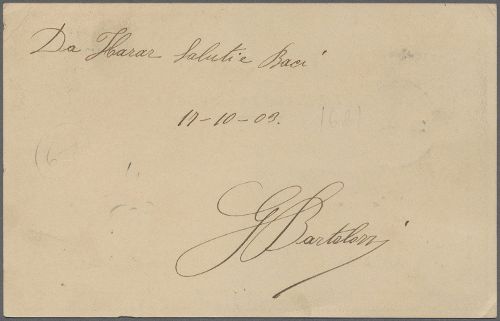 Da Harar Saluti e Baci
17-10-03.
G Bartoloni